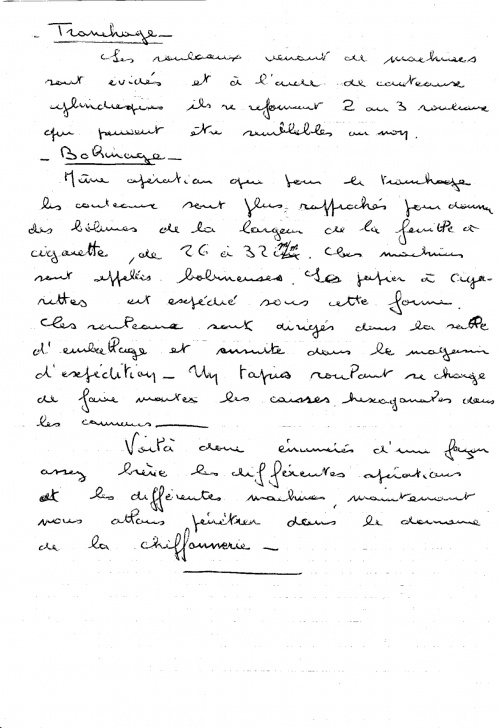 - Tranchage -
Les rouleaux venant de machines
sont évidés et à l'aide de couteaux
cylindriques ils se reforment 2 ou 3 rouleaux
qui peuvent être semblables ou non.
- Bobinage -
Même opération que pour le tranchage
les couteaux sont plus rapprochés pour donner
des bobines de la largeur de la feuille à
cigarette, de 26 à 32 m/m. Ces machines
sont appelées bobineuses. Le papier à ciga-
rettes est expédié sous cette forme.
Ces rouleaux sont dirigés dans la salle
d'emballage et ensuite dans le magasin
d'expédition - Un tapis roulant se charge
de faire monter les caisses hexagonales dans
les camions
Voilà donc énumérés d'une façon
assez brève les différentes opérations
et les différentes machines, maintenant
nous allons pénétrer dans le domaine
de la chiffonnerie -